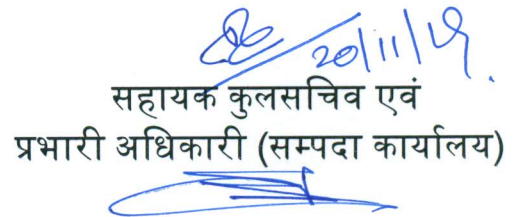 20/11/19
सहायक कुलसचिव एवं
प्रभारी अधिकारी (सम्पदा कार्यालय)